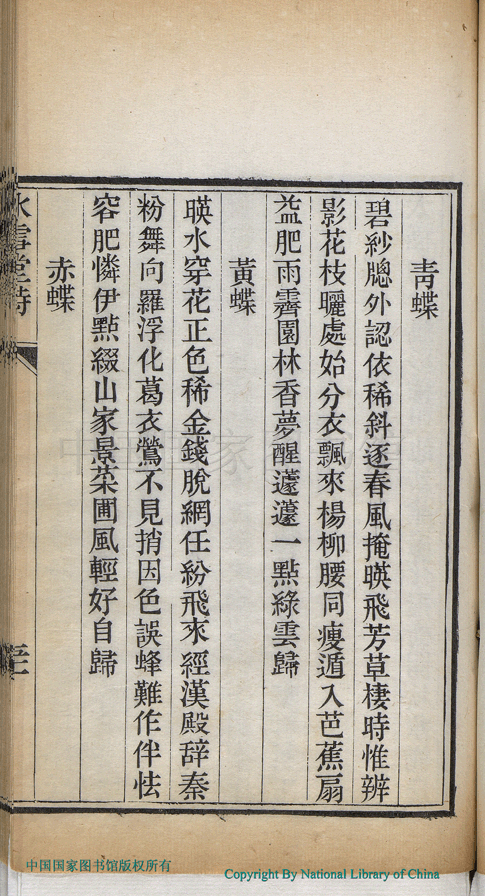 青蝶
碧紗牕外認依稀斜逐春風掩暎飛芳草棲時惟辨
影花枝曬處始分衣飄來楊柳腰同瘦遁入芭蕉扇
益肥雨霽園林香夢醒蘧蘧一點綠雲歸
黃蝶
暎水穿花正色稀金錢脫網任紛飛來經漢殿辞秦
粉舞向羅浮化葛衣鶯不見捎因色誤蜂難作伴怯
容肥憐伊點綴山家景菜圃風輕好自歸
赤蝶
冰雪堂詩
中国国家图书馆版权所有
Copyright By National Library of China